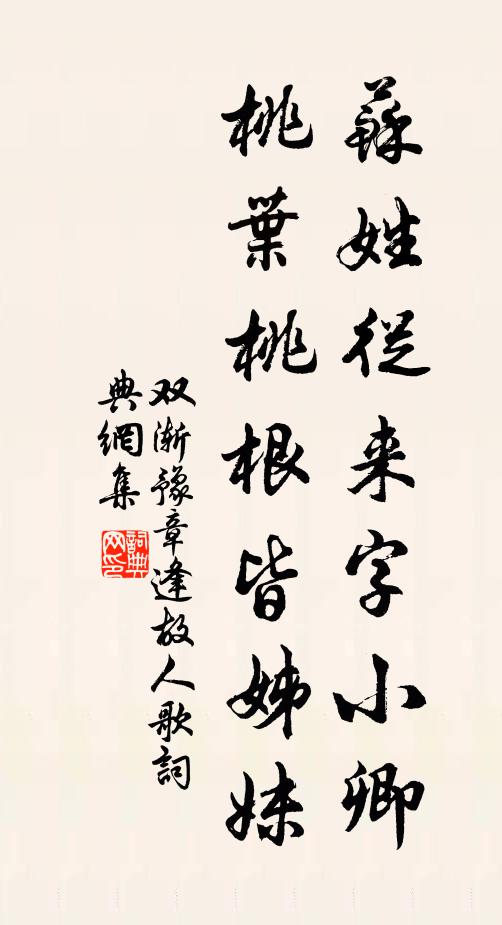 蘇姓從来字小卿
桃葉桃根皆姊妹
双渐豫章逢故人歌詞
典網集
詞典网印